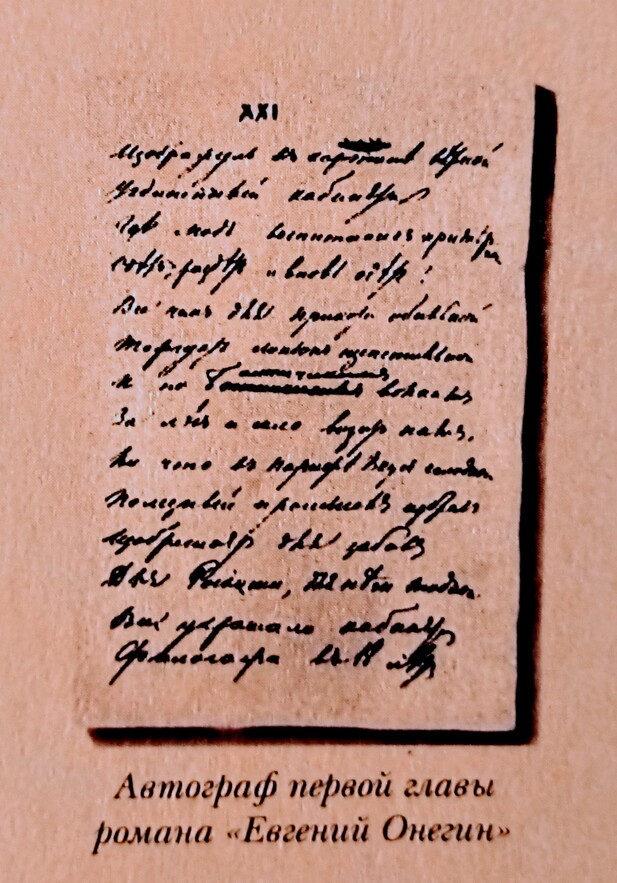 XXI
Изображу ль въ картинѣ вѣрной
Уединенный кабинетъ
Гдѣ модъ воспитанникъ примѣрный
Одѣтъ, раздѣтъ и вновь одѣтъ?
Все чѣмъ для прихоти обильной
Торгуетъ Лондонъ щепетильный
И по Балтическимъ волнамъ
За лѣсъ и сало возитъ намъ,
Все что въ Парижѣ вкусъ голодный
Полезный промыселъ избравъ
Изобретаетъ для забавъ
Для Роскоши, для нѣги модной
Все украшало кабинетъ
Философа въ 18 лѣтъ
Автограф первой главы
романа «Евгений Онегин»